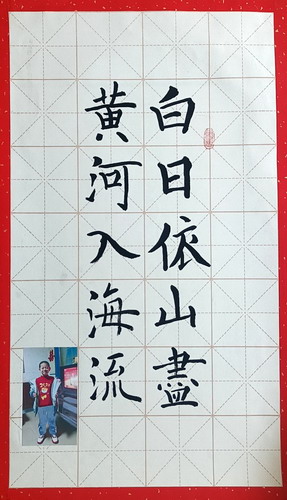 白日依山盡
黄河入海流